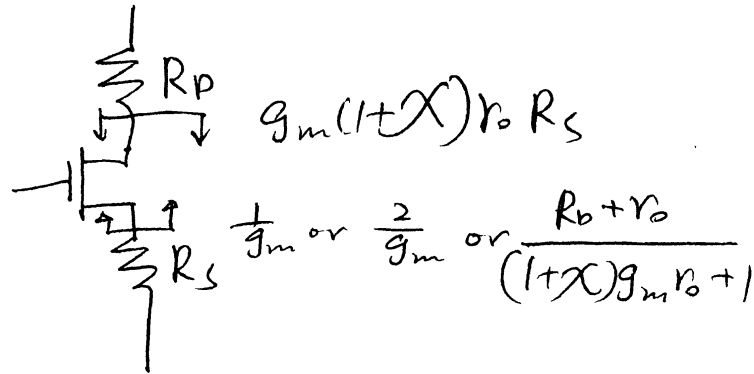 R_D
g_m(1+χ)r_o R_s
1/g_m or 2/g_m or (R_D+r_o)/((1+χ)g_m r_o+1)
R_s